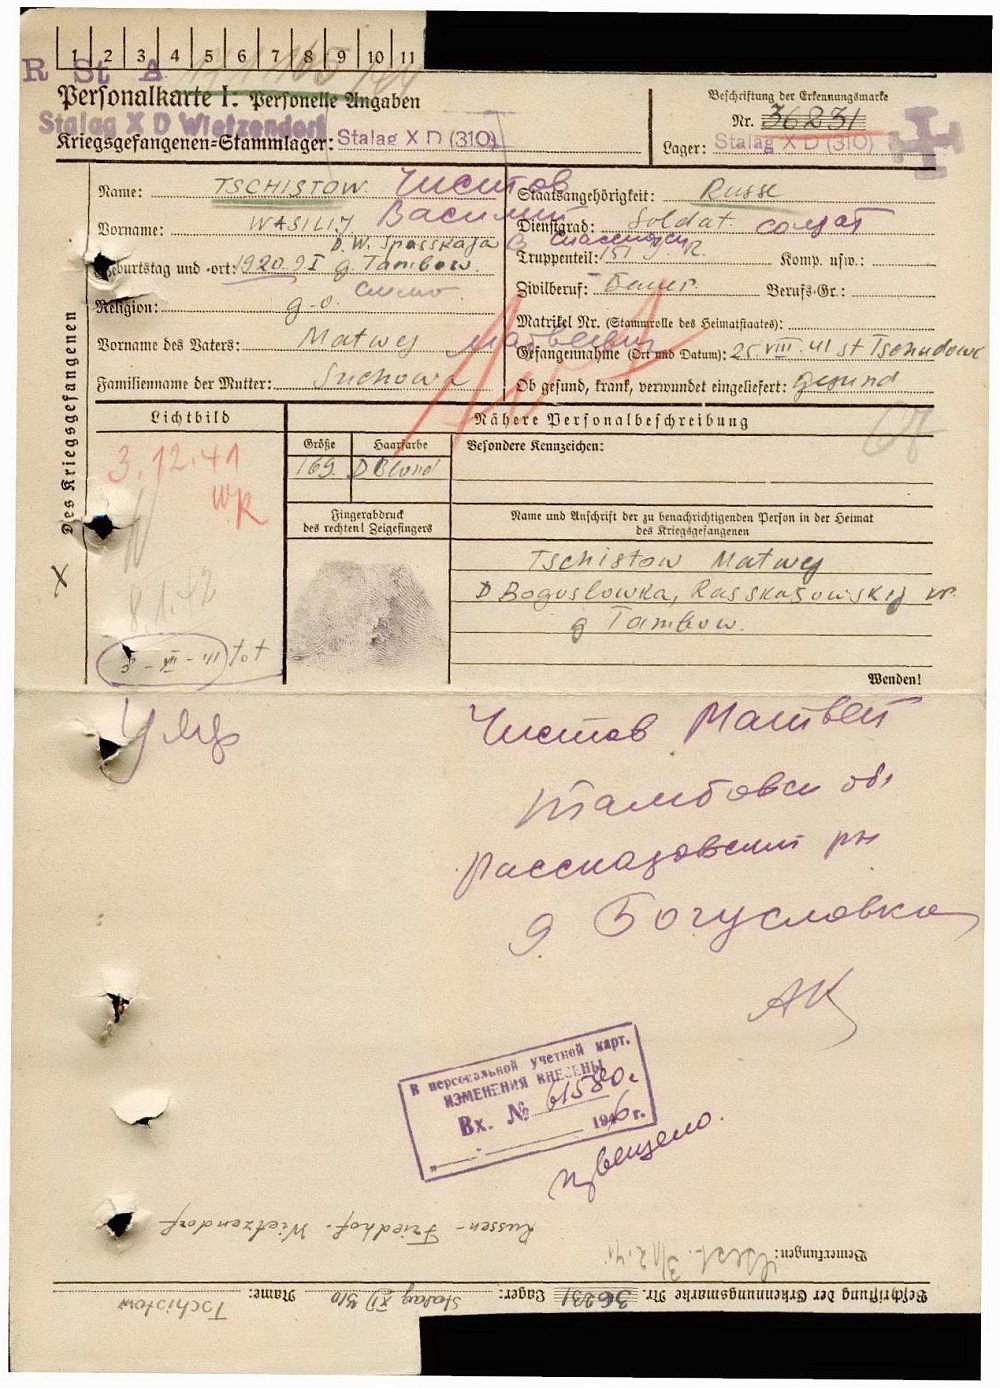 1 2 3 4 5 6 7 8 9 10 11
R St A
Personalkarte I: Personelle Angaben
Stalag X D Wietzendorf
Kriegsgefangenen=Stammlager: Stalag X D (310)
Beschriftung der Erkennungsmarke
Nr. 36231
Lager: Stalag X D (310)
Des Kriegsgefangenen
Name: TSCHISTOW Чистов
Vorname: WASILIJ Василий
D. W. Spasskaja
Geburtstag und =ort: 1920.9 I g. Tambow.
Religion: g-o.
Vorname des Vaters: Matwej Матвеевич
Familienname der Mutter: Suchowa
Staatsangehörigkeit: Russe
Dienstgrad: Soldat солдат
Truppenteil: 151 Komp. usw.:
Zivilberuf: Bauer. Berufs=Gr.:
Matrikel Nr. (Stammrolle des Heimatstaates):
Gefangennahme (Ort und Datum): 25. VIII. 41 st Tschudowo
Ob gesund, krank, verwundet eingeliefert: gesund
Lichtbild
3.12.41
WR
8.1.42
tot
Nähere Personalbeschreibung
Größe Haarfarbe Besondere Kennzeichen:
169. D Blond
Fingerabdruck
des rechten! Zeigefingers
Name und Anschrift der zu benachrichtigenden Person in der Heimat
des Kriegsgefangenen
Tschistow Matwej
D Boguslowka, Rasskasowskij
g Tambow.
Wenden!
X
Чистов Матвей
Тамбовск об.
Рассказовский рн
д. Богусловка
АК
В персональной учетной карт.
ИЗМЕНЕНИЯ ВНЕСЕНЫ
Вх. № 61580
1946 г.
извещено.
Russen-Friedhof. Wietzendorf
Bemerkungen:
Beschriftung der Erkennungsmarke Nr. 36231 Lager: Stalag XD 310 Name: Tschistow